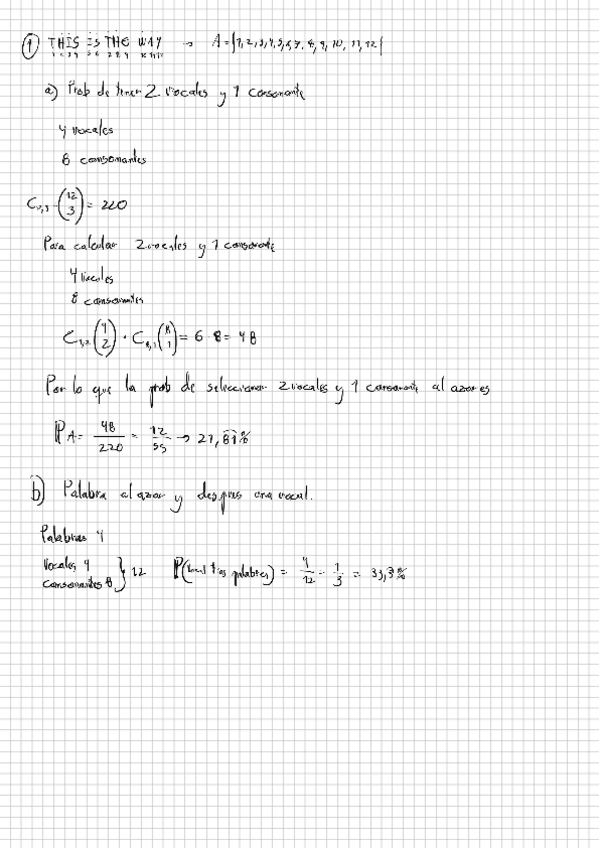 ① THIS IS THE WAY → A={1,2,3,4,5,6,7,8,9,10,11,12}
1 2 3 4 5 6 7 8 9 10 11 12
a) Prob de tener 2 vocales y 1 consonante
4 vocales
8 consonantes
C₁₂,₃ = (12 3) = 220
Para calcular 2 vocales y 1 consonante
4 vocales
8 consonantes
C₄,₂ (4 2) · C₈,₁ (8 1) = 6 · 8 = 48
Por lo que la prob de seleccionar 2 vocales y 1 consonante al azar es
P A = 48/220 = 12/55 → 21,81%
b) Palabra al azar y despues una vocal.
Palabras 4
Vocales 4
Consonantes 8 } 12 P(vocal palabras) = 4/12 = 1/3 = 33,3%